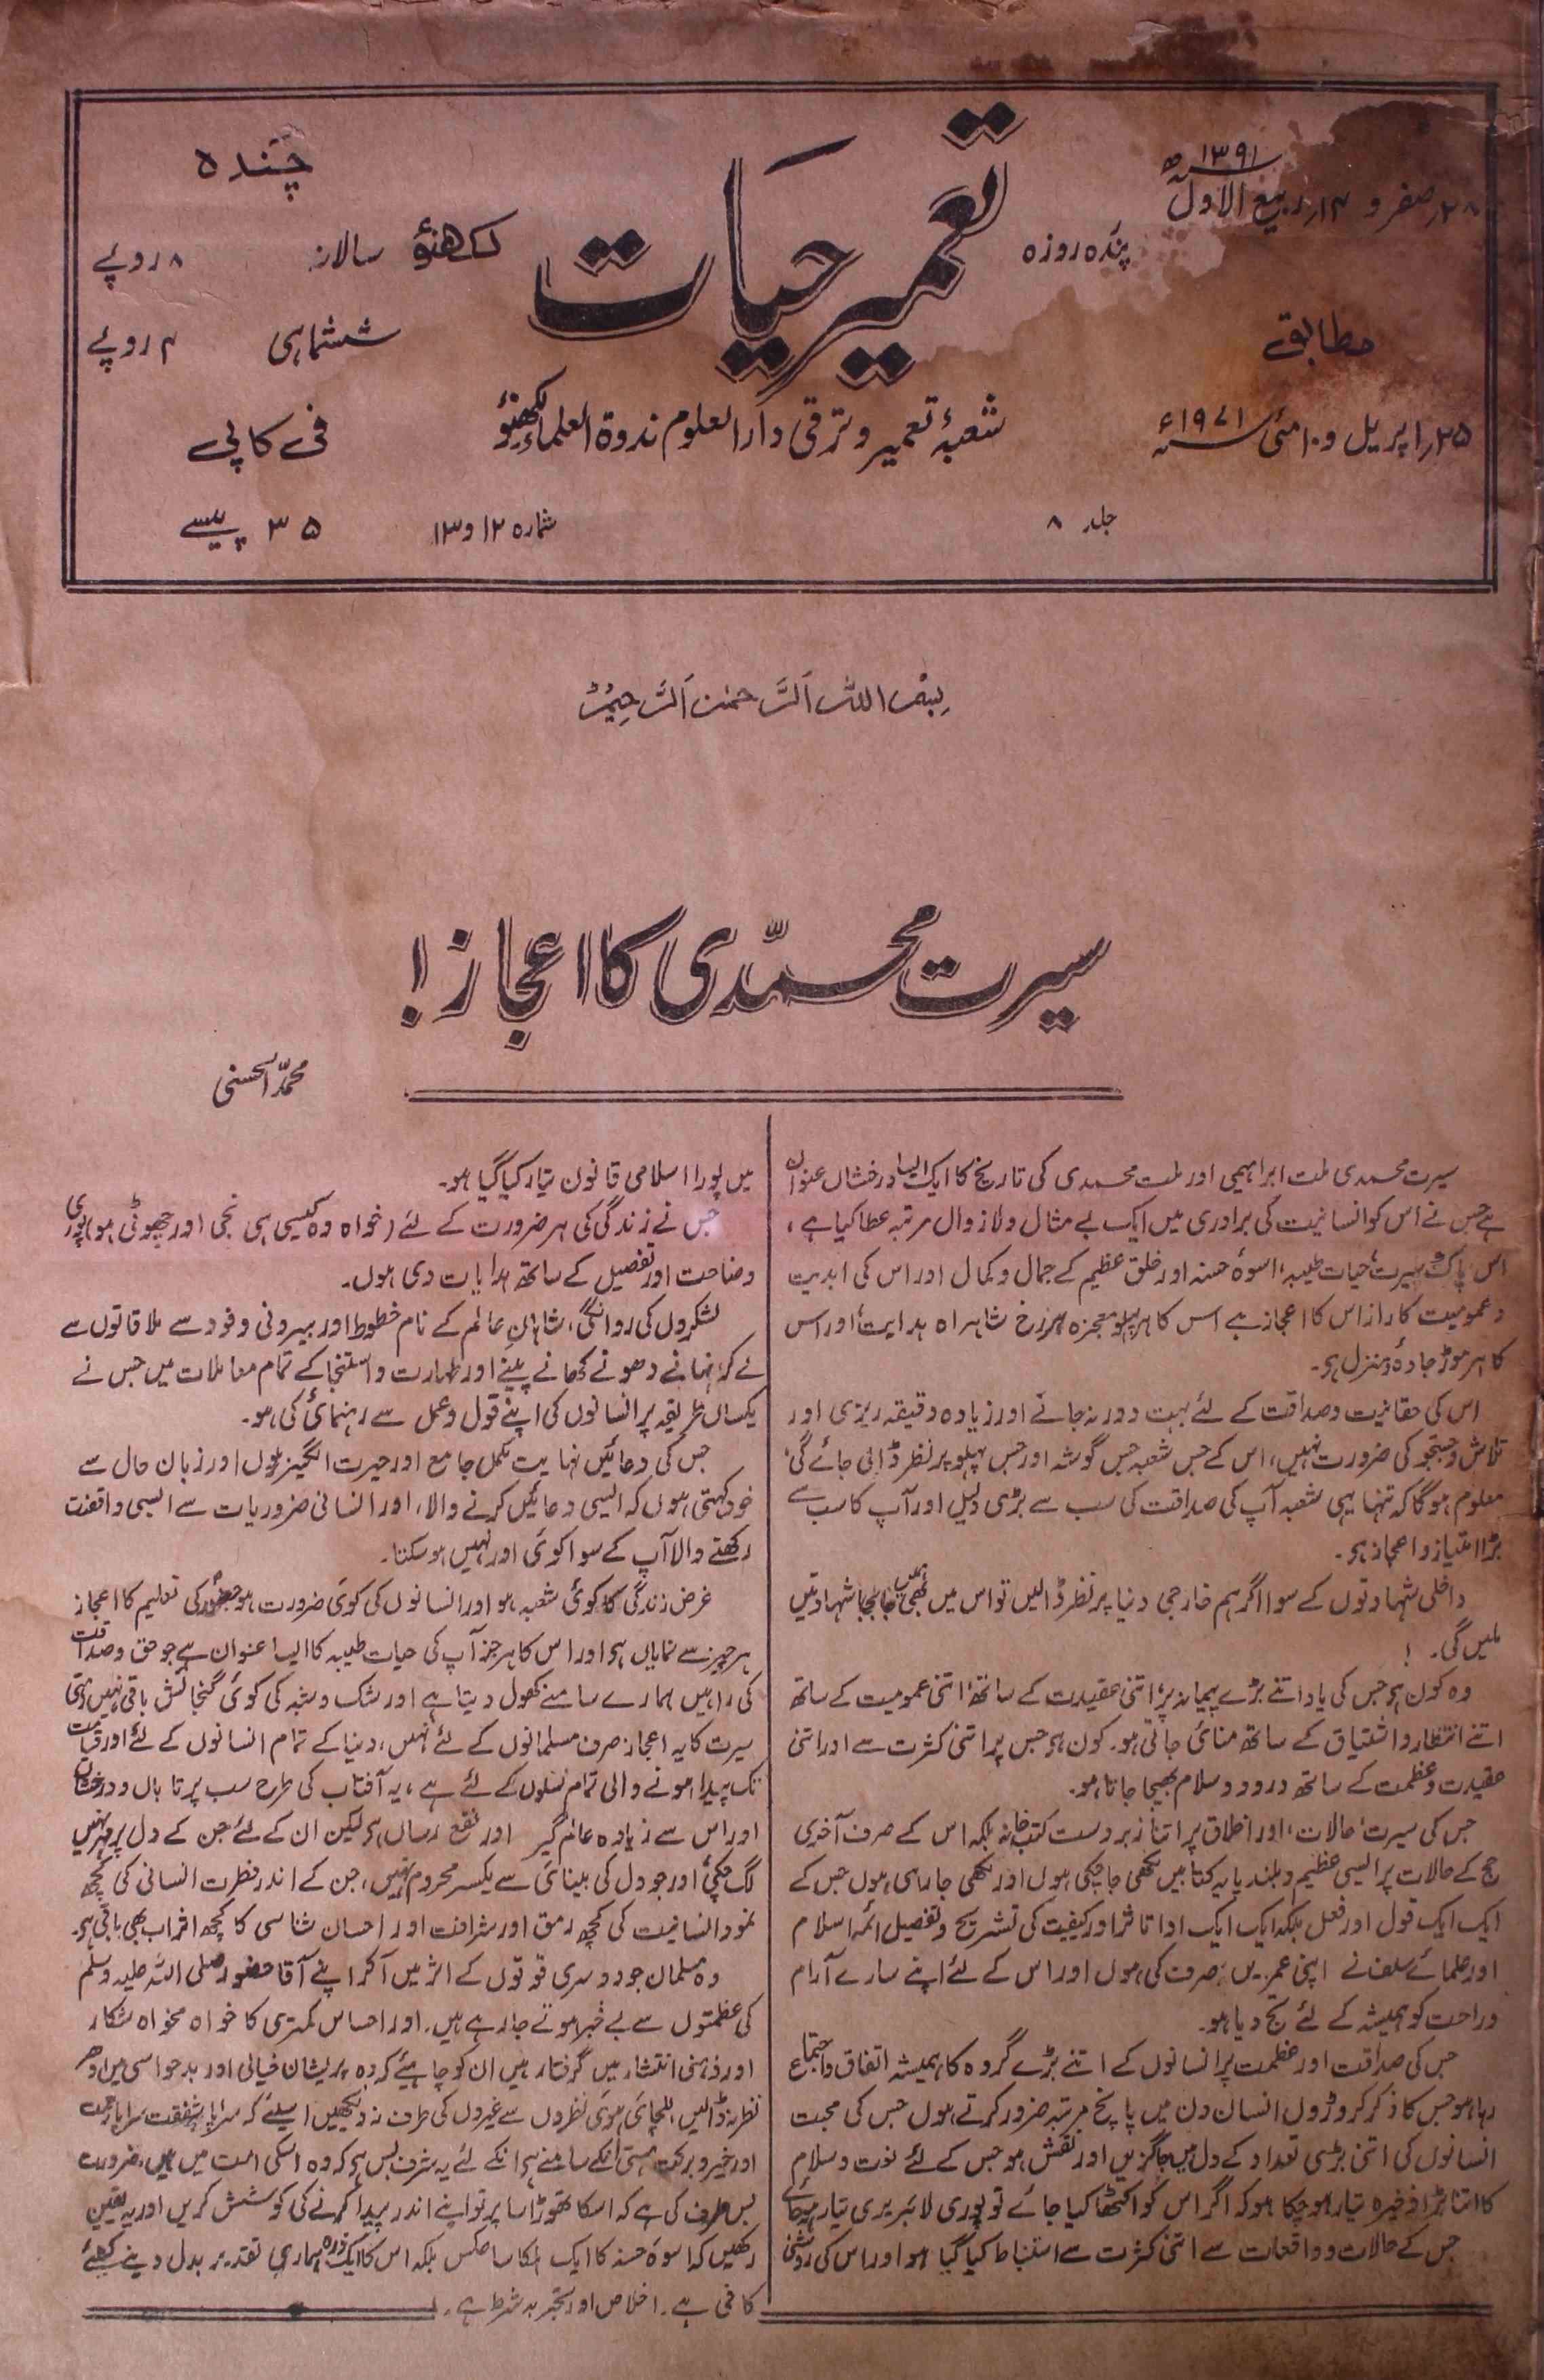 ۱۳۹۱ھ
۲۸ر صفر و ۱۴ر ربیع الاول
مطابق
۲۵ر اپریل و ۱۰ مئی سنہ ۱۹۷۱ء
پندرہ روزہ
تعمیر حیات
لکھنؤ
شعبۂ تعمیر و ترقی دارالعلوم ندوۃ العلماء لکھنؤ
جلد ۸
شمارہ ۱۲ و ۱۳
چندہ
سالانہ ۸ روپے
ششماہی ۴ روپے
فی کاپی
۳۵ پیسے
بسم اللہ الرحمٰن الرحیم
سیرت محمدی کا اعجاز!
محمد الحسنی
سیرت محمدی ملت ابراہیمی اور ملت محمدی کی تاریخ کا ایک ایسا درخشاں عنوان
ہے جس نے اس کو انسانیت کی برادری میں ایک بے مثال و لازوال مرتبہ عطا کیا ہے،
اس پاک سیرت، حیات طیبہ، اسوۂ حسنہ اور خلق عظیم کے جمال و کمال اور اس کی ابدیت
و عمومیت کا راز اس کا اعجاز ہے اس کا ہر پہلو معجزہ ہر رخ شاہراہ ہدایت، اور اس
کا ہر موڑ جادۂ منزل ہو۔
اس کی حقانیت و صداقت کے لئے بہت دور نہ جانے اور زیادہ دقیقہ ریزی اور
تلاش و جستجو کی ضرورت نہیں، اس کے جس شعبہ جس گوشہ اور جس پہلو پر نظر ڈالی جائے گی،
معلوم ہوگا کہ تنہا یہی شعبہ آپ کی صداقت کی سب سے بڑی دلیل اور آپ کا سب سے
بڑا امتیاز و اعجاز ہو۔
داخلی شہادتوں کے سوا اگر ہم خارجی دنیا پر نظر ڈالیں تو اس میں بھی ہمیں جابجا شہادتیں
ملیں گی۔ !
وہ کون ہو جس کی یاد اتنے بڑے پیمانہ پر، اتنی عقیدت کے ساتھ، اتنی عمومیت کے ساتھ
اتنے انتظار و اشتیاق کے ساتھ منائی جاتی ہو۔ کون ہو جس پر اتنی کثرت سے اور اتنی
عقیدت و عظمت کے ساتھ درود و سلام بھیجا جاتا ہو۔
جس کی سیرت، حالات، اور اخلاق پر اتنا زبردست کتب خانہ بلکہ اس کے صرف آخری
حج کے حالات پر ایسی عظیم و بلند پایہ کتابیں لکھی جا چکی ہوں اور لکھی جا رہی ہوں جس کے
ایک ایک قول اور فعل بلکہ ایک ایک ادا تاثر اور کیفیت کی تشریح و تفصیل ائمہ اسلام
اور علمائے سلف نے اپنی عمریں صرف کی ہوں اور اس کے لئے اپنے سارے آرام
و راحت کو ہمیشہ کے لئے تج دیا ہو۔
جس کی صداقت اور عظمت پر انسانوں کے اتنے بڑے گروہ کا ہمیشہ اتفاق و اجتماع
رہا ہو جس کا ذکر کروڑوں انسان دن میں پانچ مرتبہ ضرور کرتے ہوں جس کی محبت
انسانوں کی اتنی بڑی تعداد کے دل میں جاگزیں اور نقش ہو جس کے لئے نعت و سلام
کا اتنا بڑا ذخیرہ تیار ہو چکا ہو کہ اگر اس کو اکٹھا کیا جائے تو پوری لائبریری تیار ہو جائے
جس کے حالات و واقعات سے اتنی کثرت سے استنباط کیا گیا ہو اور اس کی روشنی
میں پورا اسلامی قانون تیار کیا گیا ہو۔
جس نے زندگی کی ہر ضرورت کے لئے (خواہ وہ کیسی ہی نجی اور چھوٹی ہو) پوری
وضاحت اور تفصیل کے ساتھ ہدایات دی ہوں۔
لشکروں کی روانگی، شاہان عالم کے نام خطوط اور بیرونی وفود سے ملاقاتوں سے
لے کر نہانے دھونے کھانے پینے اور طہارت و استنجا کے تمام معاملات میں جس نے
یکساں طریقہ پر انسانوں کی اپنے قول و عمل سے رہنمائی کی ہو۔
جس کی دعائیں نہایت مکمل جامع اور حیرت انگیز ہوں اور زبان حال سے
خود کہتی ہوں کہ ایسی دعائیں کرنے والا، اور انسانی ضروریات سے ایسی واقفیت
رکھنے والا آپ کے سوا کوئی اور نہیں ہو سکتا۔
غرض زندگی کا کوئی شعبہ ہو اور انسانوں کی کوئی ضرورت ہو حضورؐ کی تعلیم کا اعجاز
ہر چیز سے نمایاں ہو اور اس کا ہر جز آپ کی حیات طیبہ کا ایسا عنوان ہے جو حق و صداقت
کی راہیں ہمارے سامنے کھول دیتا ہے اور شک و شبہ کی کوئی گنجائش باقی نہیں رہتی
سیرت کا یہ اعجاز صرف مسلمانوں کے لئے نہیں، دنیا کے تمام انسانوں کے لئے اور قیامت
تک پیدا ہونے والی تمام نسلوں کے لئے ہے، یہ آفتاب کی طرح سب پر تاباں و درخشاں
اور اس سے زیادہ عالم گیر اور نفع رساں ہو لیکن ان کے لئے جن کے دل پر مہر نہیں
لگ چکی اور جو دل کی بینائی سے یکسر محروم نہیں، جن کے اندر فطرت انسانی کی کچھ
نمو و انسانیت کی کچھ رمق اور شرافت اور احسان شناسی کا کچھ اثر اب بھی باقی ہو
وہ مسلمان جو دوسری قوتوں کے اثر میں آ کر اپنے آقا حضور صلی اللہ علیہ وسلم
کی عظمتوں سے بے خبر ہوتے جا رہے ہیں۔ اور احساس کمتری کا خواہ مخواہ شکار
اور ذہنی انتشار میں گرفتار ہیں ان کو چاہیئے کہ وہ پریشان خیالی اور بدحواسی میں ادھر
نظر نہ ڈالیں، للچائی ہوئی نظروں سے غیروں کی طرف نہ دیکھیں اسلئے کہ سراپا شفقت سراپا رحمت
اور خیر و برکت ہستی انکے سامنے ہو انکے لئے یہ شرف بس ہو کہ وہ اسکی امت میں ہیں، ضرورت
بس صرف کی ہے کہ اسکا تھوڑا سا پرتو اپنے اندر پیدا کرنے کی کوشش کریں اور یہ یقین
رکھیں کہ اسوۂ حسنہ کا ایک ہلکا سا عکس بلکہ اس کا ایک ذرہ ہماری تقدیر بدل دینے کیلئے
کافی ہے۔ اخلاص اور تجربہ شرط ہے۔